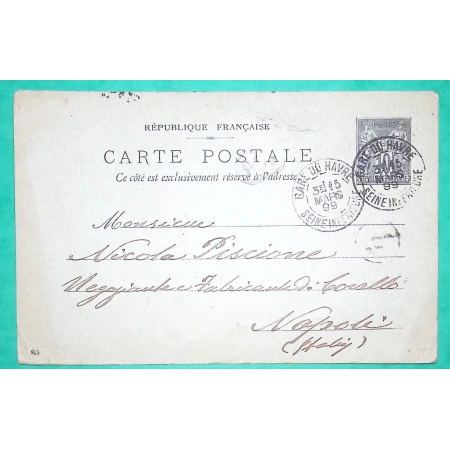 RÉPUBLIQUE FRANÇAISE
CARTE POSTALE
Ce côté est exclusivement réservé à l'adresse
GARE DU HAVRE
3E 15
MARS
99
SEINE INFERIEURE
GARE DU HAVRE
MARS
99
SEINE INFERIEURE
10
Monsieur
Nicola Piscione
Negoziante e Fabricante di Corallo
Napoli
(Italy)